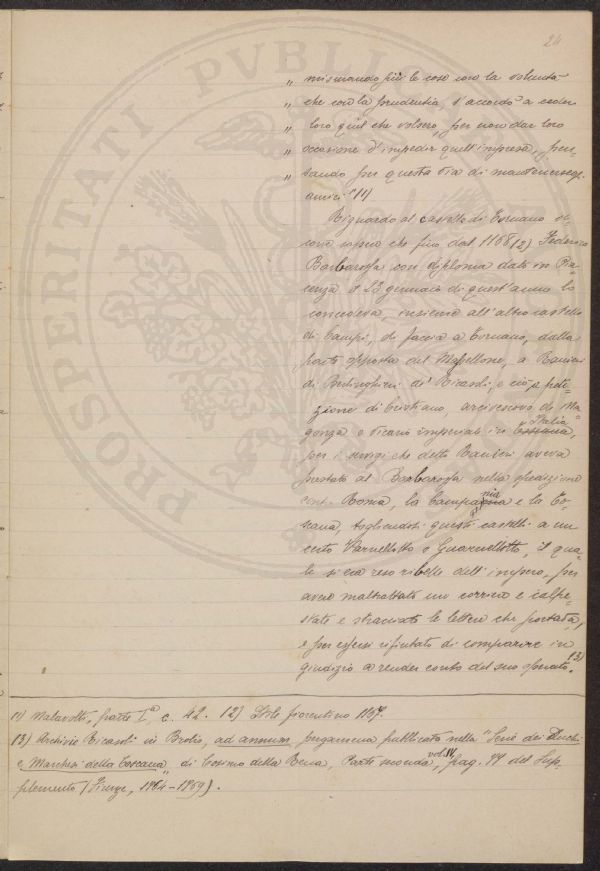 24
PROSPERITATI PVBLICAE
„ misurando più le cose con la volontà
„ che con la prudentia, s'accordò a ceder
„ loro quel che volsero, per non dar loro
„ occasione d'impedir quell'impresa, pen-
„ sando per questa via di mantenersegli
amici" (1)
Riguardo al castello di Tornano
fino dal 1168 (2) Federico
Barbarossa con diploma dato in Pia-
cenza il 23 gennaio di quest'anno lo
concedeva, insieme all'altro castello
di Campi, di faccia a Tornano, dalla
parte opposta del Massellone, a Ranieri
di Berlinghieri de' Ricasoli, e ciò a peti-
zione di Cristiano, arcivescovo di Ma-
gonza e Vicario imperiale in Toscana Italia,
per i servigi che detto Ranieri aveva
prestato al Barbarossa nella spedizione
cont. Roma, la Campania e la To-
scana, togliendosi questi castelli a un
certo Varnellotto o Guarnellotto, il qua-
le si era reso ribelle dell'impero, per
avere maltrattato un corriere e calpe-
state e stracciate le lettere che portava,
e per essersi rifiutato di comparire in
giudizio a render conto del suo operato. (3)
(1) Malavolti, parte Iª, c. 42. (2) Stile fiorentino 1167.
(3) Archivio Ricasoli in Brolio, ad annum, pergamena pubblicata nella "Serie dei Duchi
e Marchesi della Toscana" di Cosimo della Rena, Parte seconda, vol. IV, pag. 99 del Sup-
plemento (Firenze, 1764-1769).